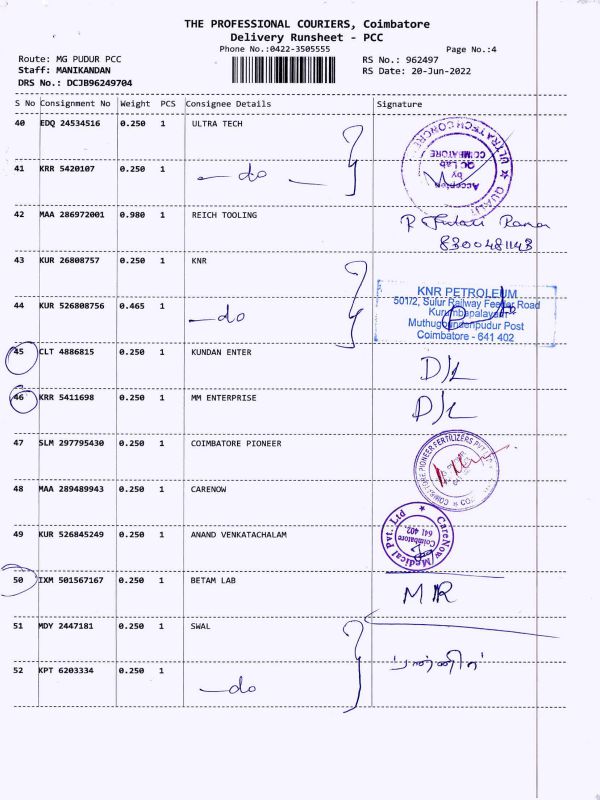 THE PROFESSIONAL COURIERS, Coimbatore
Delivery Runsheet - PCC
Phone No.:0422-3505555 Page No.:4
Route: MG PUDUR PCC RS No.: 962497
Staff: MANIKANDAN RS Date: 20-Jun-2022
DRS No.: DCJB96249704
S No Consignment No Weight PCS Consignee Details Signature
40 EDQ 24534516 0.250 1 ULTRA TECH
ULTRATECH CONCRE
QUALIT
Accepted
by
QC Lab
COIMBATORE
41 KRR 5420107 0.250 1 —do —
42 MAA 286972001 0.980 1 REICH TOOLING
8300481143
43 KUR 26808757 0.250 1 KNR
KNR PETROLEUM
501/2, Sulur Railway Feeder Road
Kurumbapalayam
Muthugoundenpudur Post
Coimbatore - 641 402
44 KUR 526808756 0.465 1 —do
45 CLT 4886815 0.250 1 KUNDAN ENTER D/L
46 KRR 5411698 0.250 1 MM ENTERPRISE D/L
47 SLM 297795430 0.250 1 COIMBATORE PIONEER
COIMBATORE PIONEER FERTILIZERS PVT LTD
48 MAA 289489943 0.250 1 CARENOW
CareNow Medical Pvt. Ltd
Coimbatore
641 402.
49 KUR 526845249 0.250 1 ANAND VENKATACHALAM
50 IXM 501567167 0.250 1 BETAM LAB MR
51 MDY 2447181 0.250 1 SWAL
52 KPT 6203334 0.250 1 —do